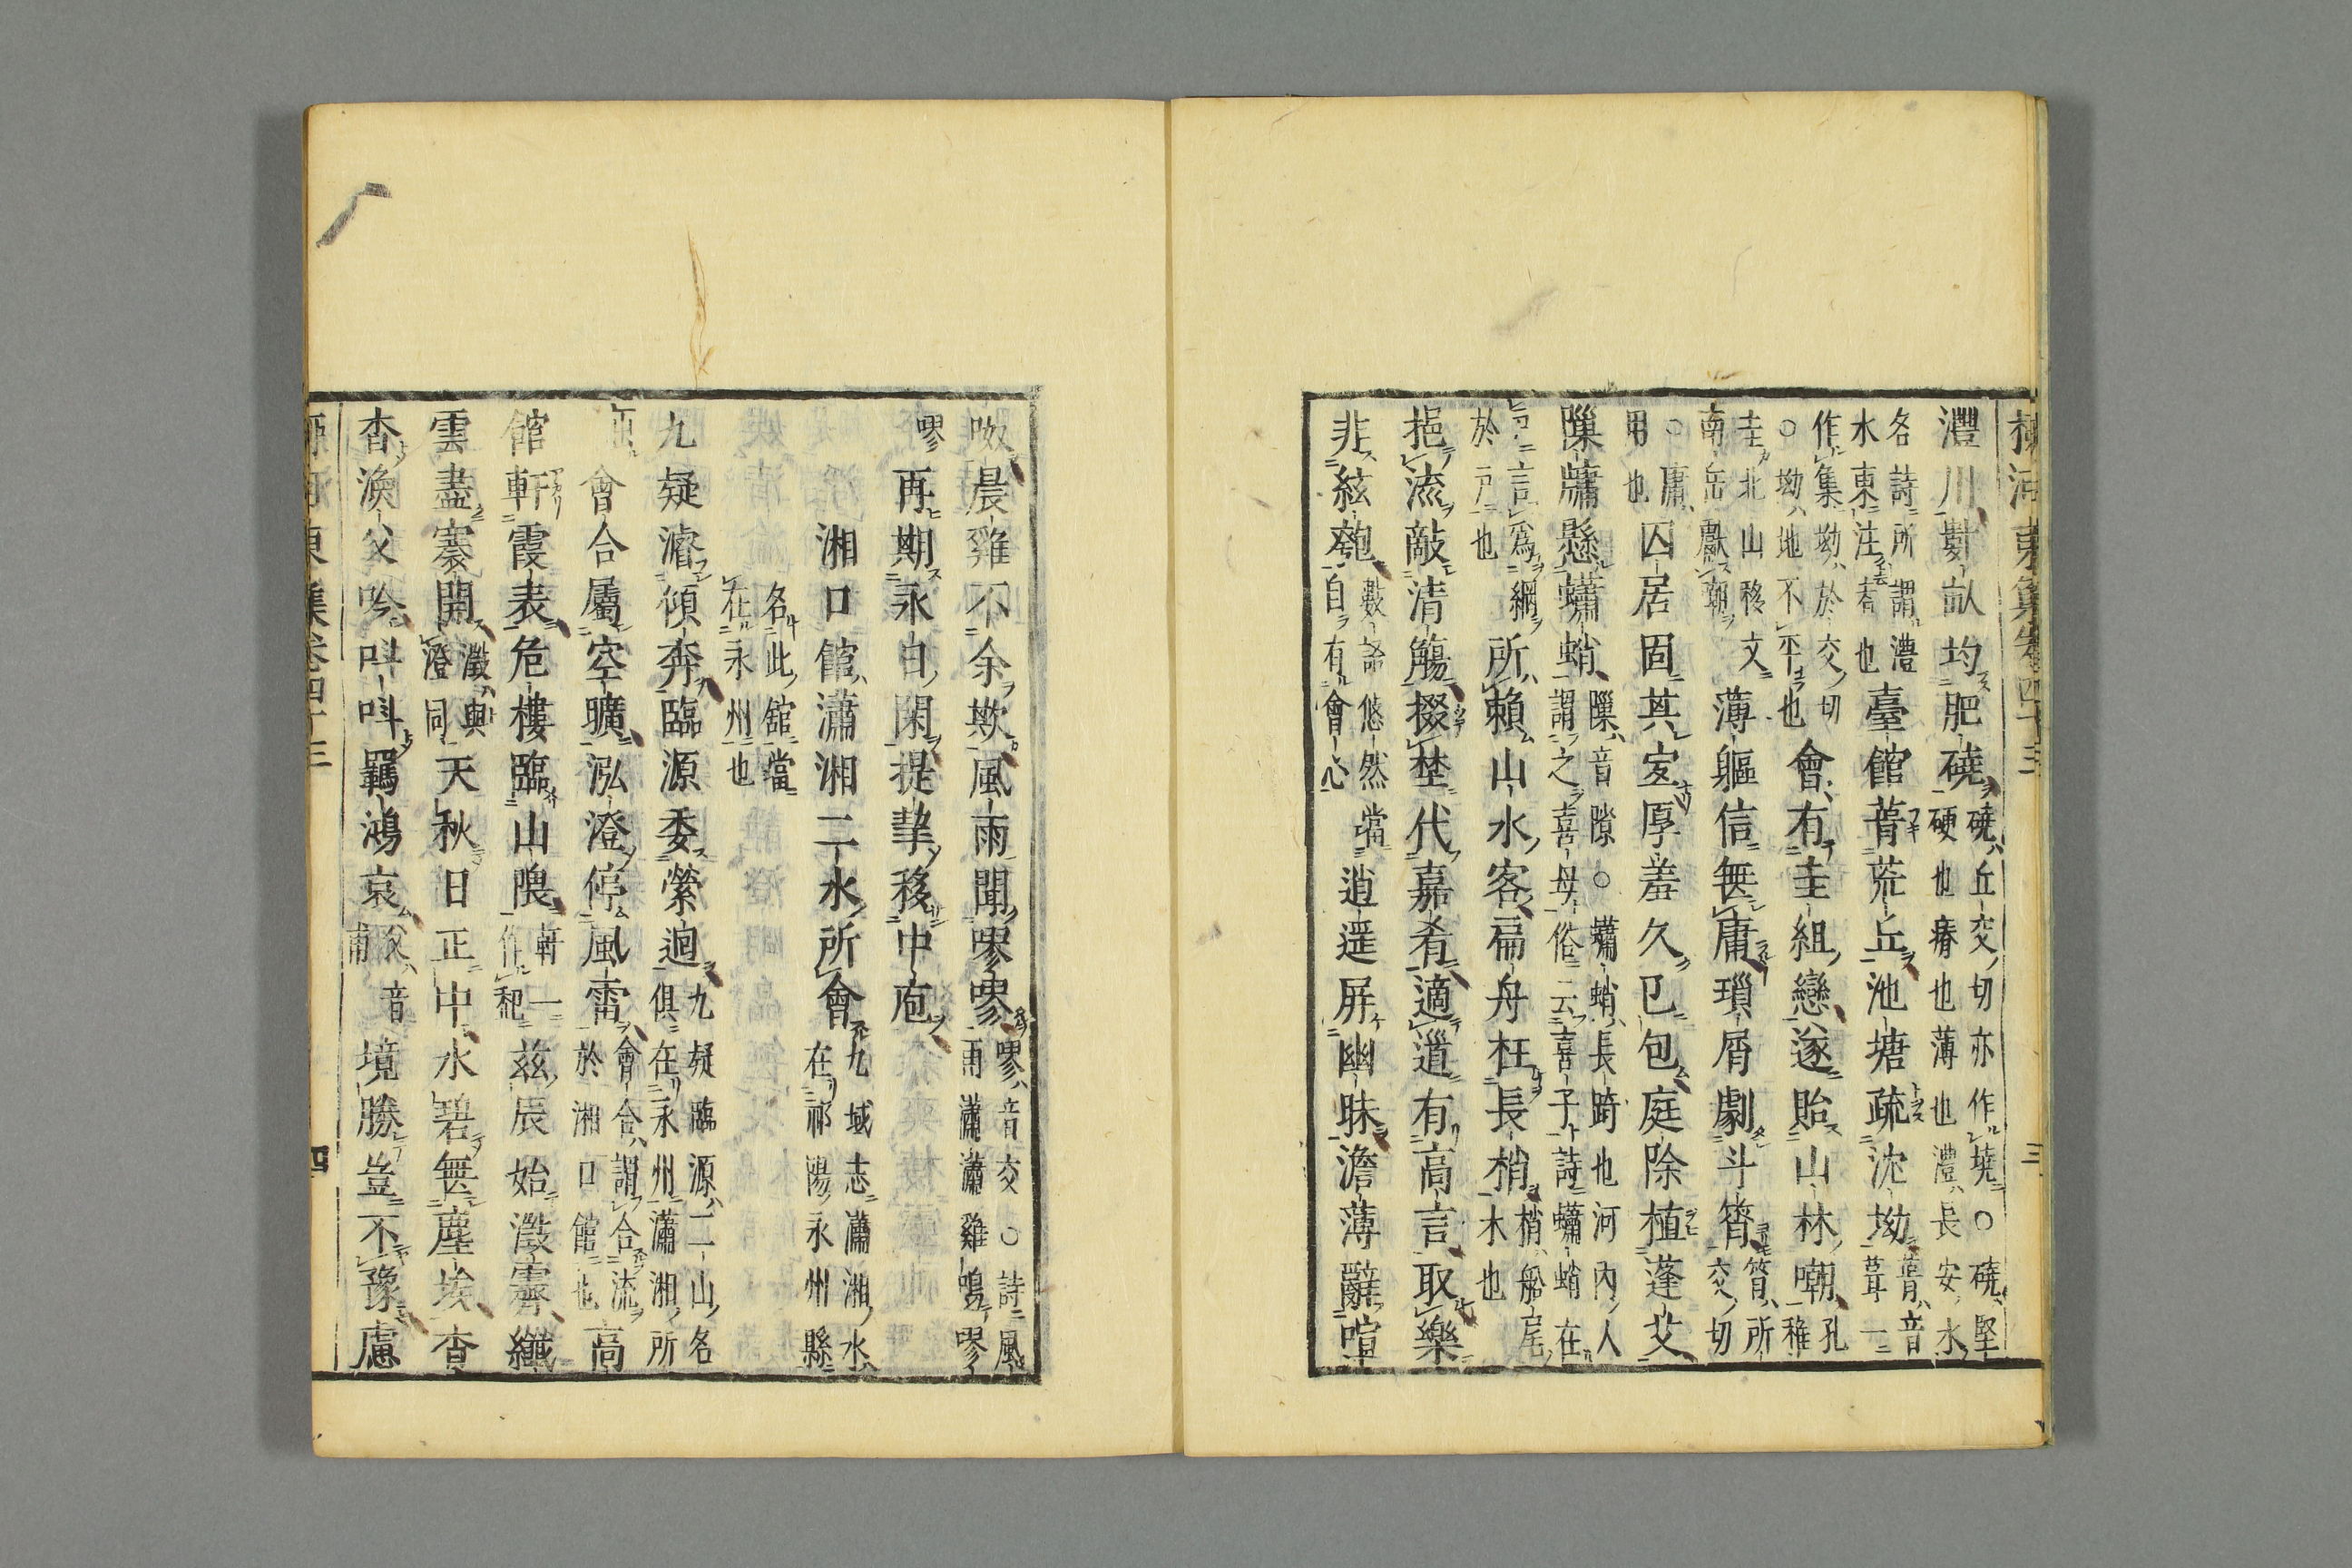 柳河東集卷四十三 三
灃川數畝均肥磽磽丘交切亦作墝○磽堅
硬也瘠也薄也灃長安水
各詩所謂灃
水東注者也臺館葺荒丘池塘疏沈坳葺音
葺一
作集坳於交切
○坳地不平也會有圭組戀遂貽山林嘲孔
稚
圭北山移文
南岳獻嘲薄軀信無庸瑣屑劇斗筲筲所
交切
○庸
用也囚居固其宐厚羞久巳包庭除植蓬艾
隟牖懸蠨蛸隟音隙○蠨蛸長踦也河内人
謂之喜母俗云喜子詩蠨蛸在
戶言爲網
於戶也所賴山水客扁舟枉長梢梢船尾
木也
挹流敵清觴掇埜代嘉肴適道有高言取樂
非絃匏數語悠然當
自有會心逍遥屏幽昧澹薄辭喧
呶晨雞不余欺風雨聞嘐嘐嘐音交○詩風
雨瀟瀟雞鳴嘐
嘐再期永日閑提挈移中庖
湘口館瀟湘二水所會九域志瀟湘水
在祁陽永州縣
名此舘當
在永州也
九疑濬傾奔臨源委縈迴九疑臨源二山名
俱在永州瀟湘所
會合屬空曠泓澄停風雷會合謂合流
於湘口館也高
館軒霞表危樓臨山隈軒一
作杞茲辰始澂霽纖
雲盡褰開澂與
澄同天秋日正中水碧無塵埃杳
杳漁父吟叫叫羈鴻哀父音
甫境勝豈不豫慮
柳河東集卷四十三 四